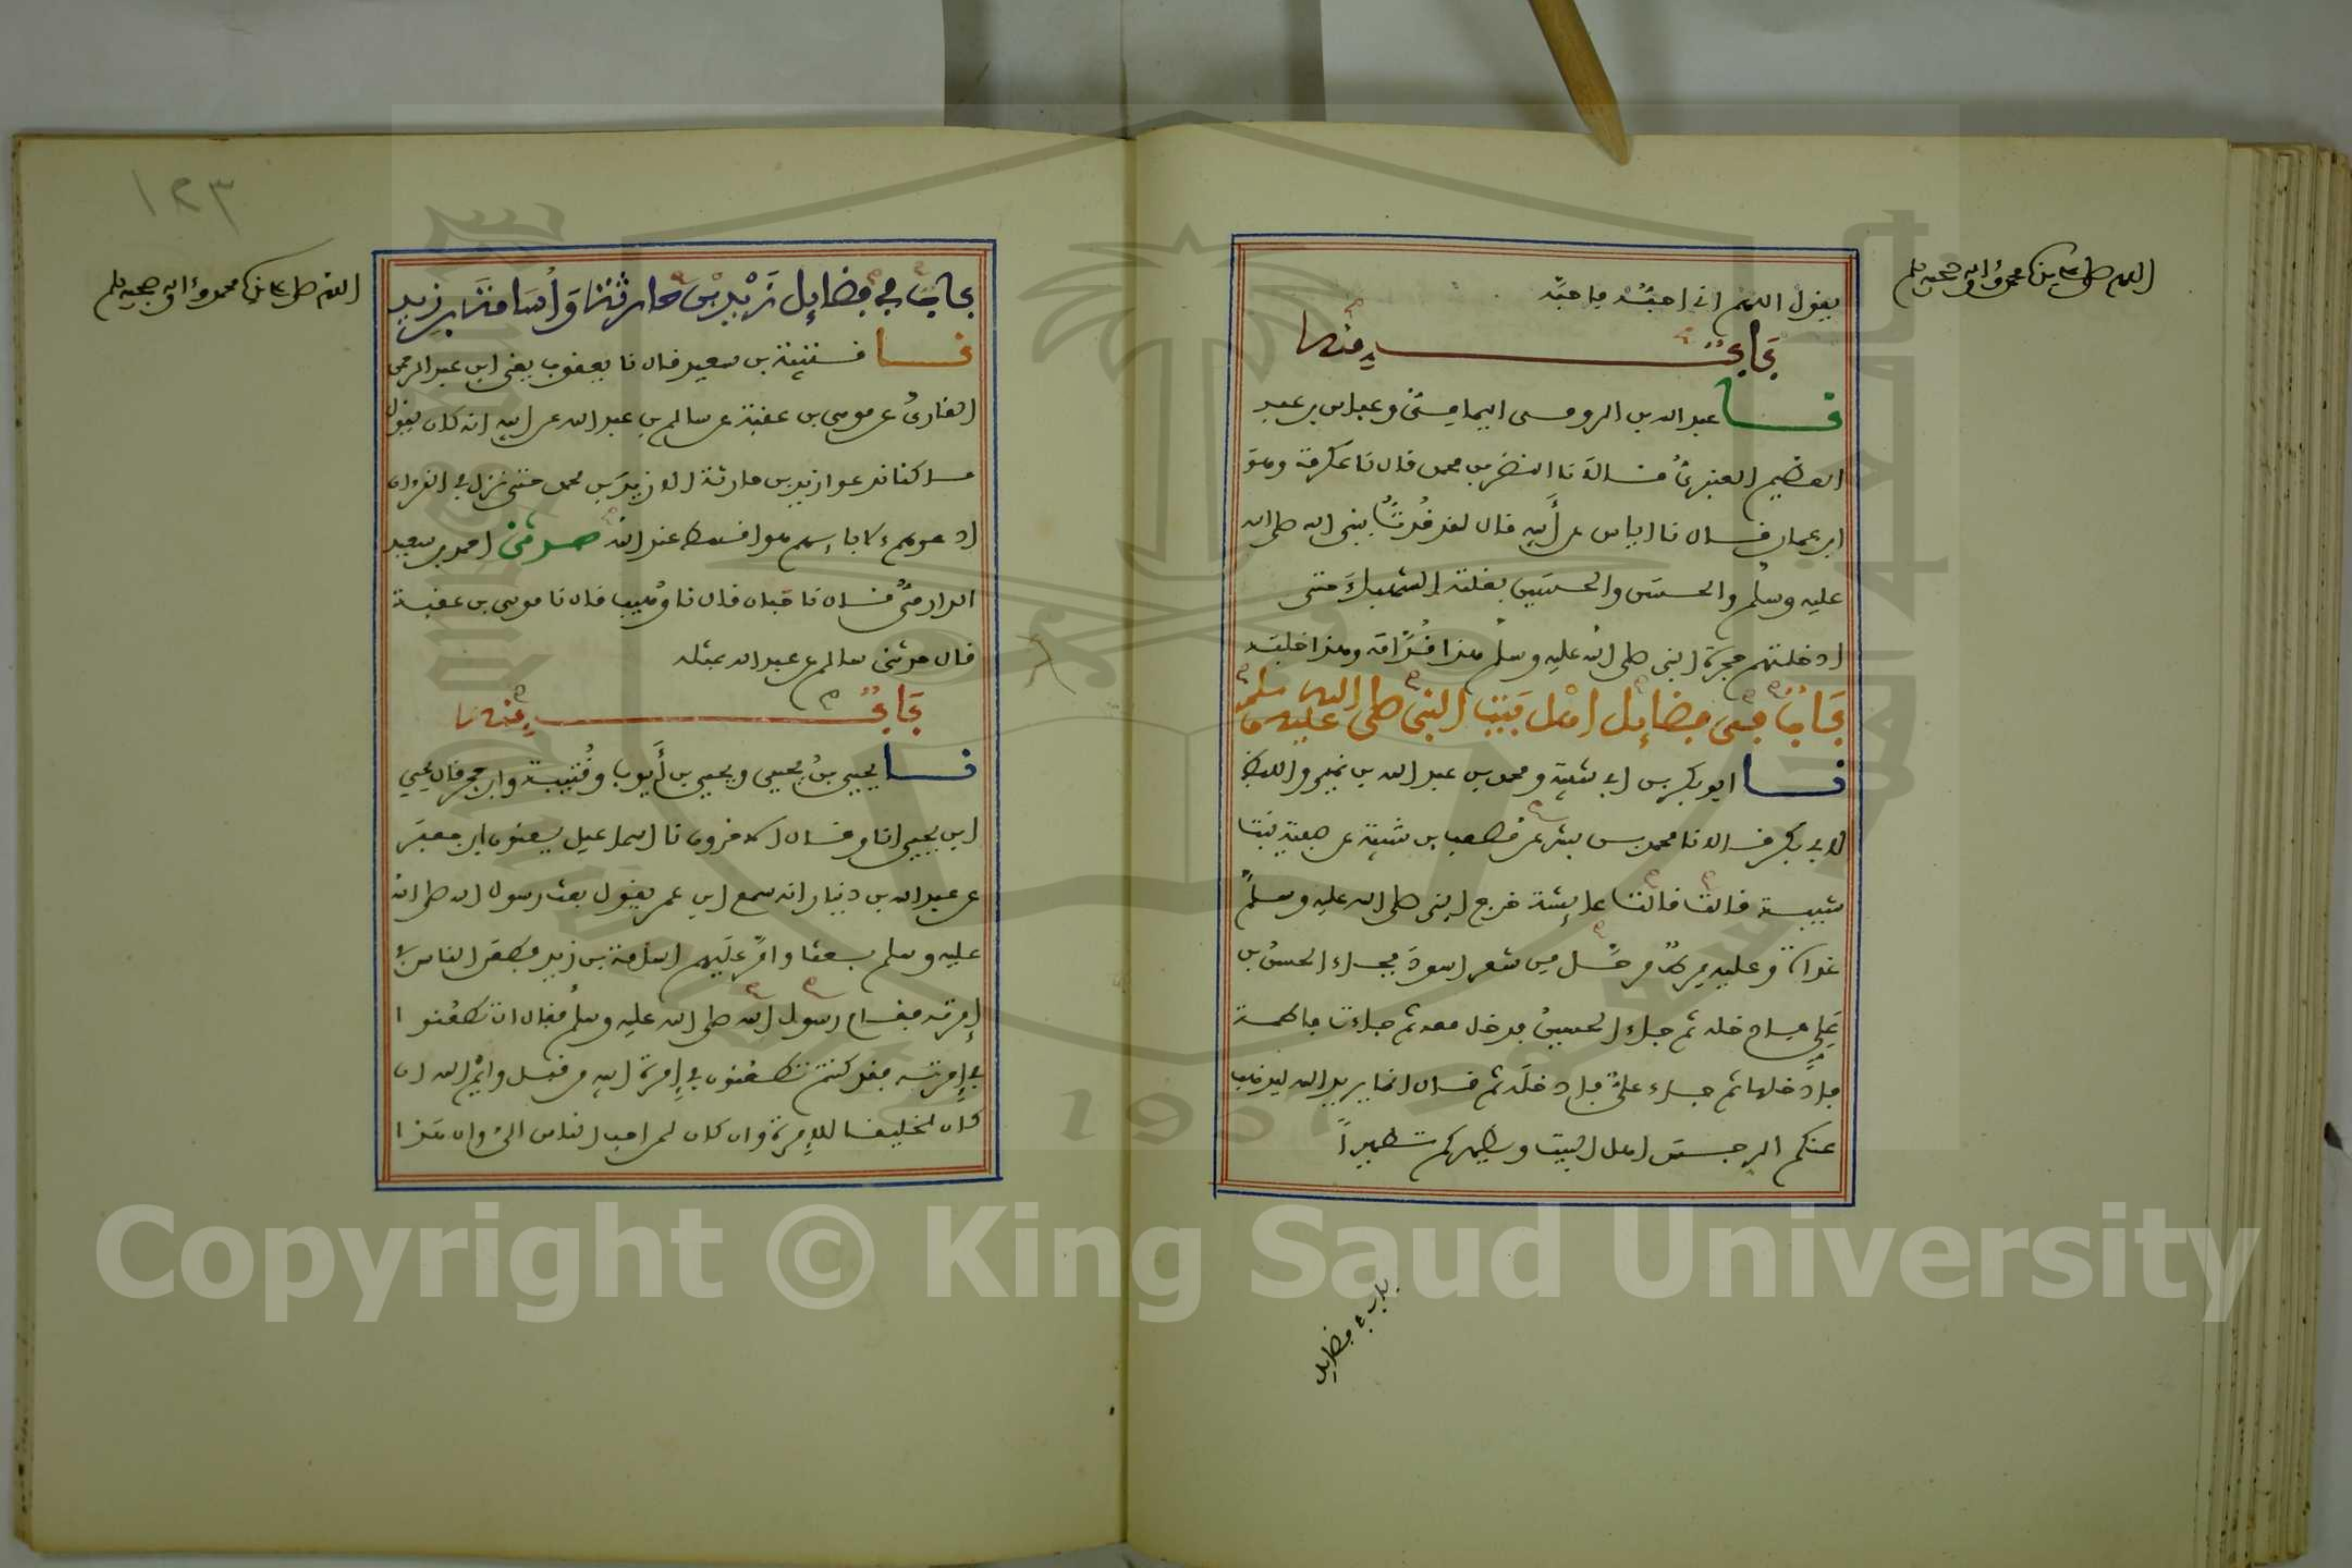 اللهم صل على سيدنا محمد وءاله وصحبه وسلم
يقول اللهم اني احبه فاحبه
باب منه
نا عبد الله بن الرومي اليمامي وعباس بن عبد
العظيم العنبري قالا نا النضر بن محمد قال نا عكرمة وهو
ابن عمار قال نا اياس عن أبيه قال لقد قدت بنبي الله صلى الله
عليه وسلم والحسن والحسين بغلته الشهباء حتى
ادخلتهم حجرة النبي صلى الله عليه وسلم هذا قدامه وهذا خلفه
باب في فضايل اهل بيت النبي صلى الله عليه وسلم
نا ابو بكر بن ابي شيبة ومحمد بن عبد الله بن نمير واللفظ
لابي بكر قالا نا محمد بن بشر عن مصعب بن شيبة عن صفية بنت
شيبة قالت قالت عايشة خرج النبي صلى الله عليه وسلم
غداة وعليه مرط مرحل من شعر اسود فجاء الحسن بن
علي فادخله ثم جاء الحسين فدخل معه ثم جاءت فاطمة
فادخلها ثم جاء علي فادخله ثم قال انما يريد الله ليذهب
عنكم الرجس اهل البيت ويطهركم تطهيرا
باب في فضايل
١٢٣
اللهم صل على سيدنا محمد وءاله وصحبه وسلم
باب في فضايل زيد بن حارثة وأسامة بن زيد
نا قتيبة بن سعيد قال نا يعقوب يعني ابن عبد الرحمن
القاري عن موسى بن عقبة عن سالم بن عبد الله عن ابيه انه كان يقول
ما كنا ندعوا زيد بن حارثة الا زيد بن محمد حتى نزل في القرءان
ادعوهم لاباءهم هو اقسط عند الله حدثني احمد بن سعيد
الدارمي قال نا حبان قال نا وهيب قال نا موسى بن عقبة
قال حدثني سالم عن عبد الله بمثله
باب منه
نا يحيى بن يحيى ويحيى بن أيوب وقتيبة وابن حجر قال يحيى
ابن يحيى انا وقال الاخرون نا اسماعيل يعنون ابن جعفر
عن عبد الله بن دينار انه سمع ابن عمر يقول بعث رسول الله صلى الله
عليه وسلم بعثا وامر عليهم اسامة بن زيد فطعن الناس في
إمرته فقام رسول الله صلى الله عليه وسلم فقال ان تطعنوا
في إمرته فقد كنتم تطعنون في إمرة ابيه من قبل وايم الله ان
كان لخليقا للإمرة وان كان لمن احب الناس الي وان هذا
Copyright © King Saud University
1957